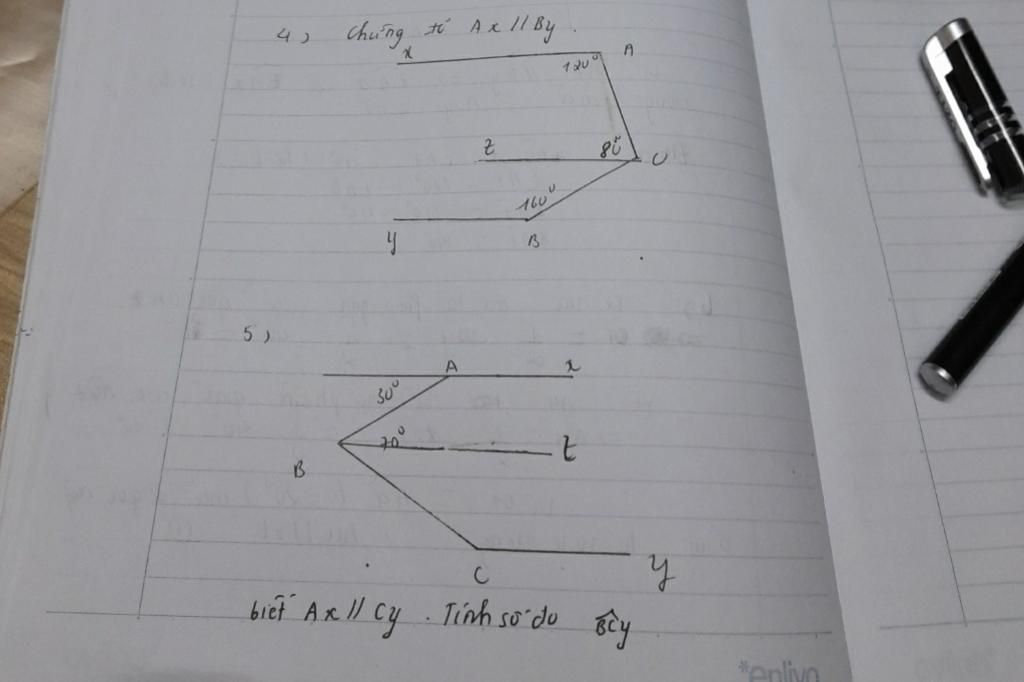 4, Chứng tỏ Ax // By.
x A
120°
z 80° O
160°
y B
5,
A x
30°
70° t
B
C y
biết Ax // Cy. Tính số đo BCy
*enlivo